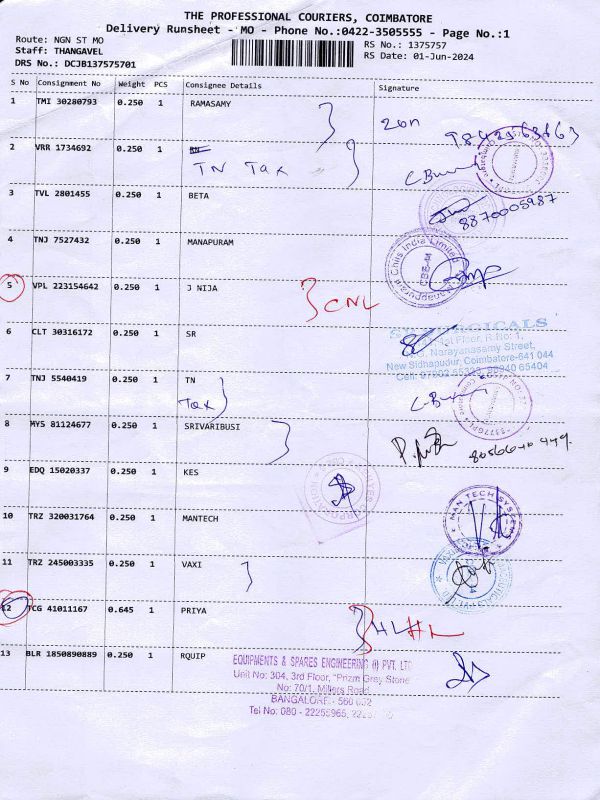 THE PROFESSIONAL COURIERS, COIMBATORE
Delivery Runsheet - MO - Phone No.:0422-3505555 - Page No.:1
Route: NGN ST MO
Staff: THANGAVEL
DRS No.: DCJB137575701
RS No.: 1375757
RS Date: 01-Jun-2024
S No Consignment No Weight PCS Consignee Details Signature
1 TMI 30280793 0.250 1 RAMASAMY
2 VRR 1734692 0.250 1
TN Tax
3 TVL 2801455 0.250 1 BETA
8870005987
4 TNJ 7527432 0.250 1 MANAPURAM
5 VPL 223154642 0.250 1 J NIJA CNL
6 CLT 30316172 0.250 1 SR
Narayanasamy Street,
New Sidhapudur, Coimbatore-641 044
7 TNJ 5540419 0.250 1 TN
Tax
8 MYS 81124677 0.250 1 SRIVARIBUSI
9 EDQ 15020337 0.250 1 KES
10 TRZ 320031764 0.250 1 MANTECH
MAN TECH SYSTEM
11 TRZ 245003335 0.250 1 VAXI
12 TCG 41011167 0.645 1 PRIYA
13 BLR 1850890889 0.250 1 RQUIP
EQUIPMENTS & SPARES ENGINEERING (I) PVT. LTD
Unit No: 304, 3rd Floor, "Prizm Gray Stone
No: 70/1, Millers Road
BANGALORE - 560 052
Tel No: 080 - 22255965,